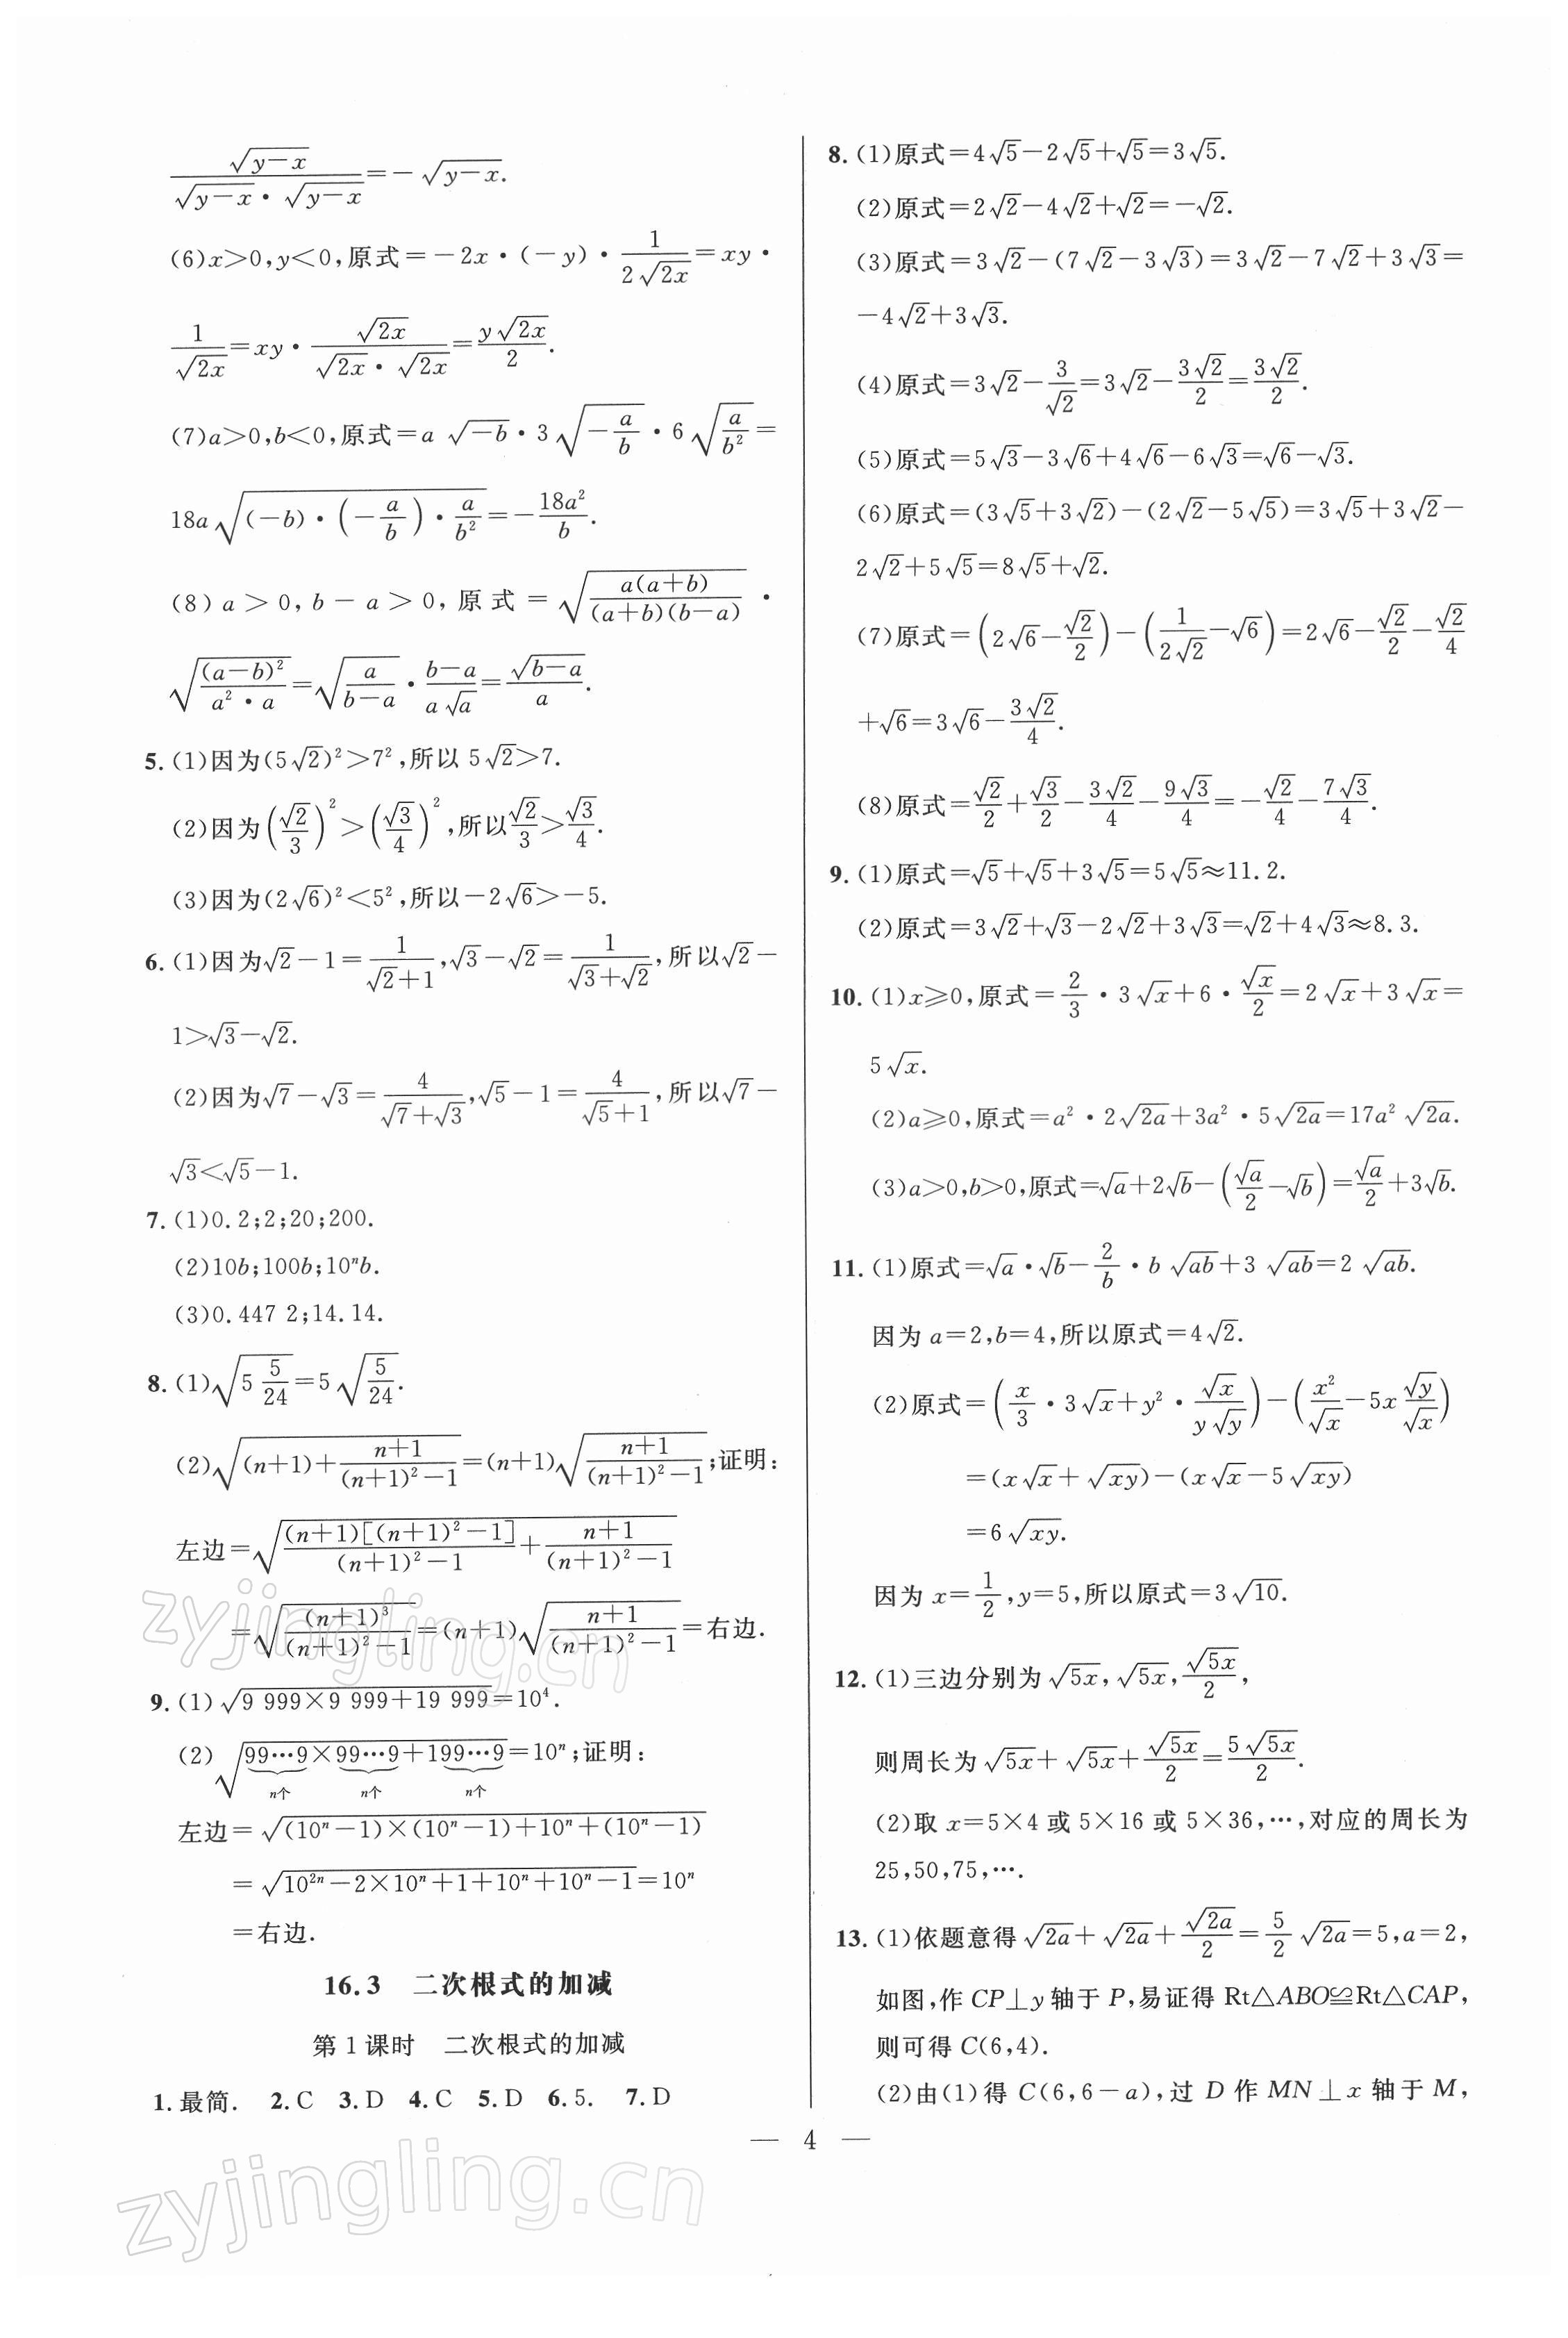 $\frac{\sqrt{y-x}}{\sqrt{y-x}\cdot\sqrt{y-x}}=-\sqrt{y-x}$.
(6)$x>0,y<0$,原式$=-2x\cdot(-y)\cdot\frac{1}{2\sqrt{2x}}=xy\cdot$
$\frac{1}{\sqrt{2x}}=xy\cdot\frac{\sqrt{2x}}{\sqrt{2x}\cdot\sqrt{2x}}=\frac{y\sqrt{2x}}{2}$.
(7)$a>0,b<0$,原式$=a\sqrt{-b}\cdot3\sqrt{-\frac{a}{b}}\cdot6\sqrt{\frac{a}{b^2}}=$
$18a\sqrt{(-b)\cdot\left(-\frac{a}{b}\right)\cdot\frac{a}{b^2}}=-\frac{18a^2}{b}$.
(8)$a>0,b-a>0$,原式$=\sqrt{\frac{a(a+b)}{(a+b)(b-a)}}\cdot$
$\sqrt{\frac{(a-b)^2}{a^2\cdot a}}=\sqrt{\frac{a}{b-a}}\cdot\frac{b-a}{a\sqrt{a}}=\frac{\sqrt{b-a}}{a}$.
5.(1)因为$(5\sqrt{2})^2>7^2$,所以$5\sqrt{2}>7$.
(2)因为$\left(\frac{\sqrt{2}}{3}\right)^2>\left(\frac{\sqrt{3}}{4}\right)^2$,所以$\frac{\sqrt{2}}{3}>\frac{\sqrt{3}}{4}$.
(3)因为$(2\sqrt{6})^2<5^2$,所以$-2\sqrt{6}>-5$.
6.(1)因为$\sqrt{2}-1=\frac{1}{\sqrt{2}+1},\sqrt{3}-\sqrt{2}=\frac{1}{\sqrt{3}+\sqrt{2}}$,所以$\sqrt{2}-$
$1>\sqrt{3}-\sqrt{2}$.
(2)因为$\sqrt{7}-\sqrt{3}=\frac{4}{\sqrt{7}+\sqrt{3}},\sqrt{5}-1=\frac{4}{\sqrt{5}+1}$,所以$\sqrt{7}-$
$\sqrt{3}<\sqrt{5}-1$.
7.(1)0.2;2;20;200.
(2)$10b;100b;10^nb$.
(3)0.447 2;14.14.
8.(1)$\sqrt{5\frac{5}{24}}=5\sqrt{\frac{5}{24}}$.
(2)$\sqrt{(n+1)+\frac{n+1}{(n+1)^2-1}}=(n+1)\sqrt{\frac{n+1}{(n+1)^2-1}}$;证明:
左边$=\sqrt{\frac{(n+1)[(n+1)^2-1]}{(n+1)^2-1}+\frac{n+1}{(n+1)^2-1}}$
$=\sqrt{\frac{(n+1)^3}{(n+1)^2-1}}=(n+1)\sqrt{\frac{n+1}{(n+1)^2-1}}=$右边.
9.(1)$\sqrt{9\ 999\times9\ 999+19\ 999}=10^4$.
(2)$\sqrt{\underbrace{99\cdots9}_{n个}\times\underbrace{99\cdots9}_{n个}+1\underbrace{99\cdots9}_{n个}}=10^n$;证明:
左边$=\sqrt{(10^n-1)\times(10^n-1)+10^n+(10^n-1)}$
$=\sqrt{10^{2n}-2\times10^n+1+10^n+10^n-1}=10^n$
=右边.
16.3 二次根式的加减
第1课时 二次根式的加减
1.最简. 2.C 3.D 4.C 5.D 6.5. 7.D
8.(1)原式$=4\sqrt{5}-2\sqrt{5}+\sqrt{5}=3\sqrt{5}$.
(2)原式$=2\sqrt{2}-4\sqrt{2}+\sqrt{2}=-\sqrt{2}$.
(3)原式$=3\sqrt{2}-(7\sqrt{2}-3\sqrt{3})=3\sqrt{2}-7\sqrt{2}+3\sqrt{3}=$
$-4\sqrt{2}+3\sqrt{3}$.
(4)原式$=3\sqrt{2}-\frac{3}{\sqrt{2}}=3\sqrt{2}-\frac{3\sqrt{2}}{2}=\frac{3\sqrt{2}}{2}$.
(5)原式$=5\sqrt{3}-3\sqrt{6}+4\sqrt{6}-6\sqrt{3}=\sqrt{6}-\sqrt{3}$.
(6)原式$=(3\sqrt{5}+3\sqrt{2})-(2\sqrt{2}-5\sqrt{5})=3\sqrt{5}+3\sqrt{2}-$
$2\sqrt{2}+5\sqrt{5}=8\sqrt{5}+\sqrt{2}$.
(7)原式$=\left(2\sqrt{6}-\frac{\sqrt{2}}{2}\right)-\left(\frac{1}{2\sqrt{2}}-\sqrt{6}\right)=2\sqrt{6}-\frac{\sqrt{2}}{2}-\frac{\sqrt{2}}{4}$
$+\sqrt{6}=3\sqrt{6}-\frac{3\sqrt{2}}{4}$.
(8)原式$=\frac{\sqrt{2}}{2}+\frac{\sqrt{3}}{2}-\frac{3\sqrt{2}}{4}-\frac{9\sqrt{3}}{4}=-\frac{\sqrt{2}}{4}-\frac{7\sqrt{3}}{4}$.
9.(1)原式$=\sqrt{5}+\sqrt{5}+3\sqrt{5}=5\sqrt{5}\approx11.2$.
(2)原式$=3\sqrt{2}+\sqrt{3}-2\sqrt{2}+3\sqrt{3}=\sqrt{2}+4\sqrt{3}\approx8.3$.
10.(1)$x\geqslant0$,原式$=\frac{2}{3}\cdot3\sqrt{x}+6\cdot\frac{\sqrt{x}}{2}=2\sqrt{x}+3\sqrt{x}=$
$5\sqrt{x}$.
(2)$a\geqslant0$,原式$=a^2\cdot2\sqrt{2a}+3a^2\cdot5\sqrt{2a}=17a^2\sqrt{2a}$.
(3)$a>0,b>0$,原式$=\sqrt{a}+2\sqrt{b}-\left(\frac{\sqrt{a}}{2}-\sqrt{b}\right)=\frac{\sqrt{a}}{2}+3\sqrt{b}$.
11.(1)原式$=\sqrt{a}\cdot\sqrt{b}-\frac{2}{b}\cdot b\sqrt{ab}+3\sqrt{ab}=2\sqrt{ab}$.
因为$a=2,b=4$,所以原式$=4\sqrt{2}$.
(2)原式$=\left(\frac{x}{3}\cdot3\sqrt{x}+y^2\cdot\frac{\sqrt{x}}{y\sqrt{y}}\right)-\left(\frac{x^2}{\sqrt{x}}-5x\frac{\sqrt{y}}{\sqrt{x}}\right)$
$=(x\sqrt{x}+\sqrt{xy})-(x\sqrt{x}-5\sqrt{xy})$
$=6\sqrt{xy}$.
因为$x=\frac{1}{2},y=5$,所以原式$=3\sqrt{10}$.
12.(1)三边分别为$\sqrt{5x},\sqrt{5x},\frac{\sqrt{5x}}{2}$,
则周长为$\sqrt{5x}+\sqrt{5x}+\frac{\sqrt{5x}}{2}=\frac{5\sqrt{5x}}{2}$.
(2)取$x=5\times4$或$5\times16$或$5\times36,\cdots$,对应的周长为
25,50,75,….
13.(1)依题意得$\sqrt{2a}+\sqrt{2a}+\frac{\sqrt{2a}}{2}=\frac{5}{2}\sqrt{2a}=5,a=2$,
如图,作CP⊥y轴于P,易证得Rt△ABO≌Rt△CAP,
则可得C(6,4).
(2)由(1)得C(6,6-a),过D作MN⊥x轴于M,
— 4 —
zyjingling.cn
zyjingling.cn